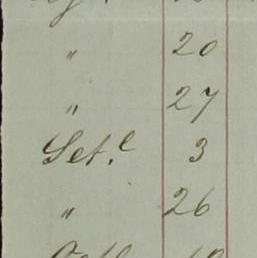 " 20
" 27
Set.e 3
" 26